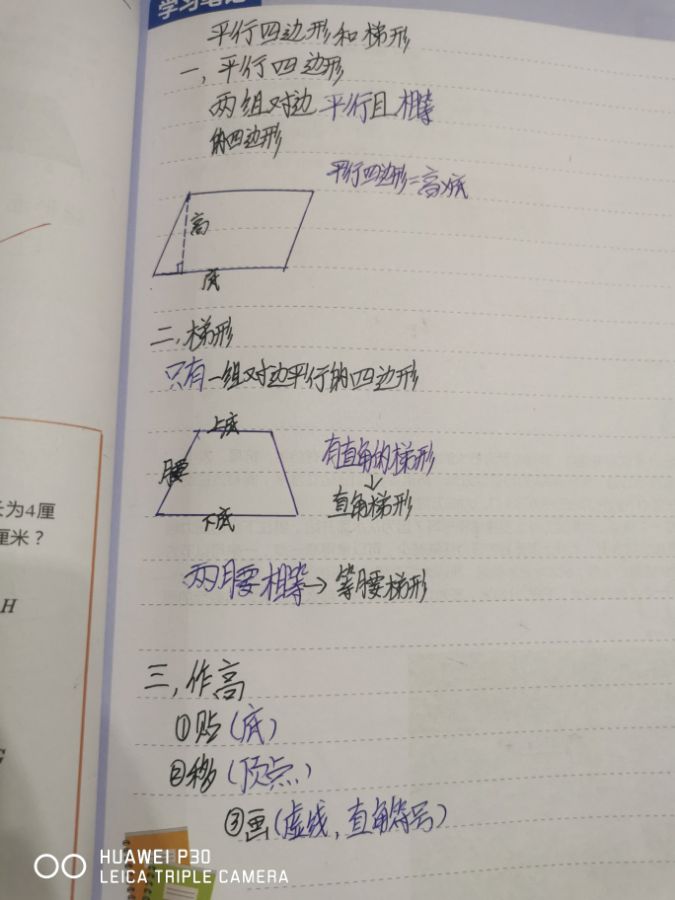 学习笔记
平行四边形和梯形
一,平行四边形
两组对边平行且相等
的四边形
平行四边形=高×底
高
底
二,梯形
只有一组对边平行的四边形
上底
腰
下底
有直角的梯形
↓
直角梯形
两腰相等→等腰梯形
三,作高
①贴(底)
②移(顶点)
③画(虚线,直角符号)
长为4厘
厘米?
H
HUAWEI P30
LEICA TRIPLE CAMERA